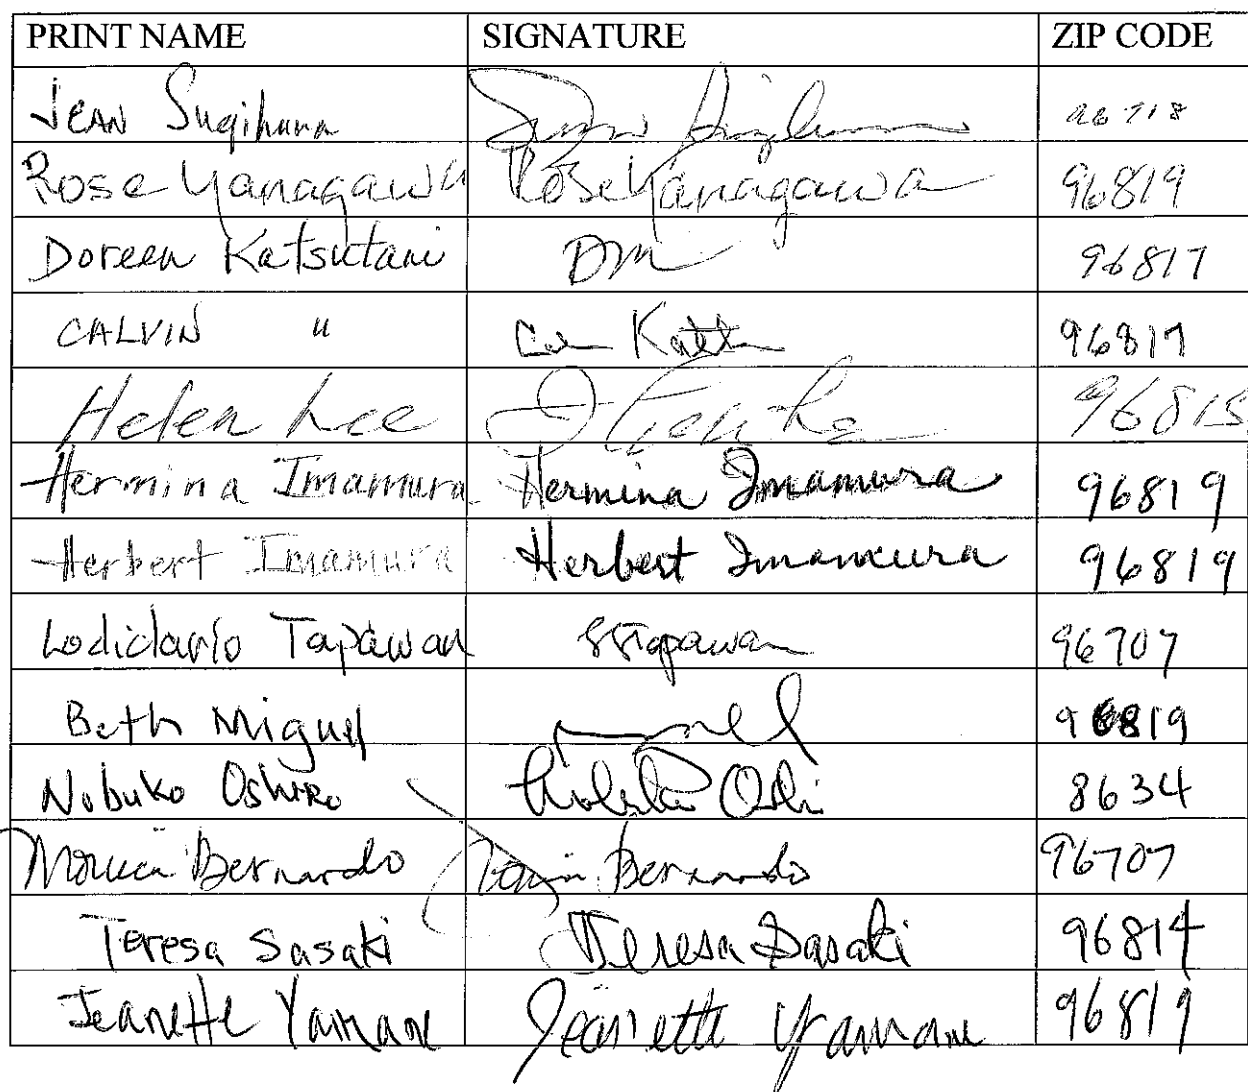 PRINT NAME SIGNATURE ZIP CODE
JEAN Sugihara 96718
Rose Yanagawa Rose Yanagawa 96819
Doreen Katsutani DM 96817
CALVIN " 96817
Helen Lee 96815
Hermina Imamura Hermina Imamura 96819
Herbert Imamura Herbert Imamura 96819
Lodidario Tapawan 96707
Beth Miguel 96819
Nobuko Oshiro 8634
Bernardo Bernardo 96707
Teresa Sasaki Teresa Sasaki 96814
Jeanette Yamane Jeanette Yamane 96819